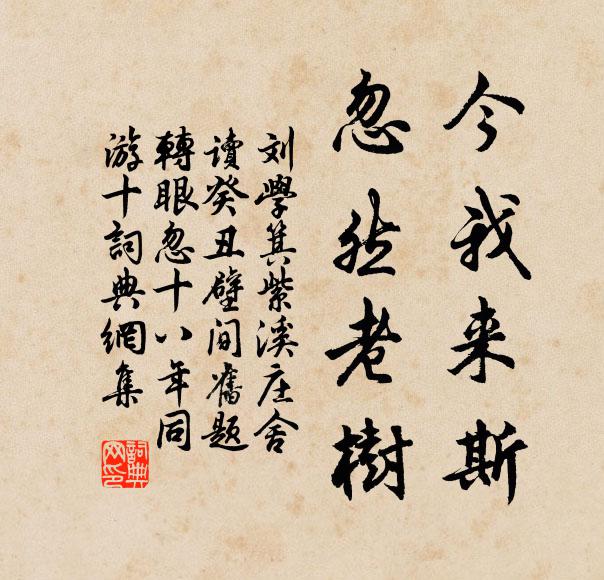 今我来斯
忽然老樹
刘學箕紫溪庄舍
读癸丑壁间舊题
轉眼忽十八年同
游十詞典網集
詞典网印